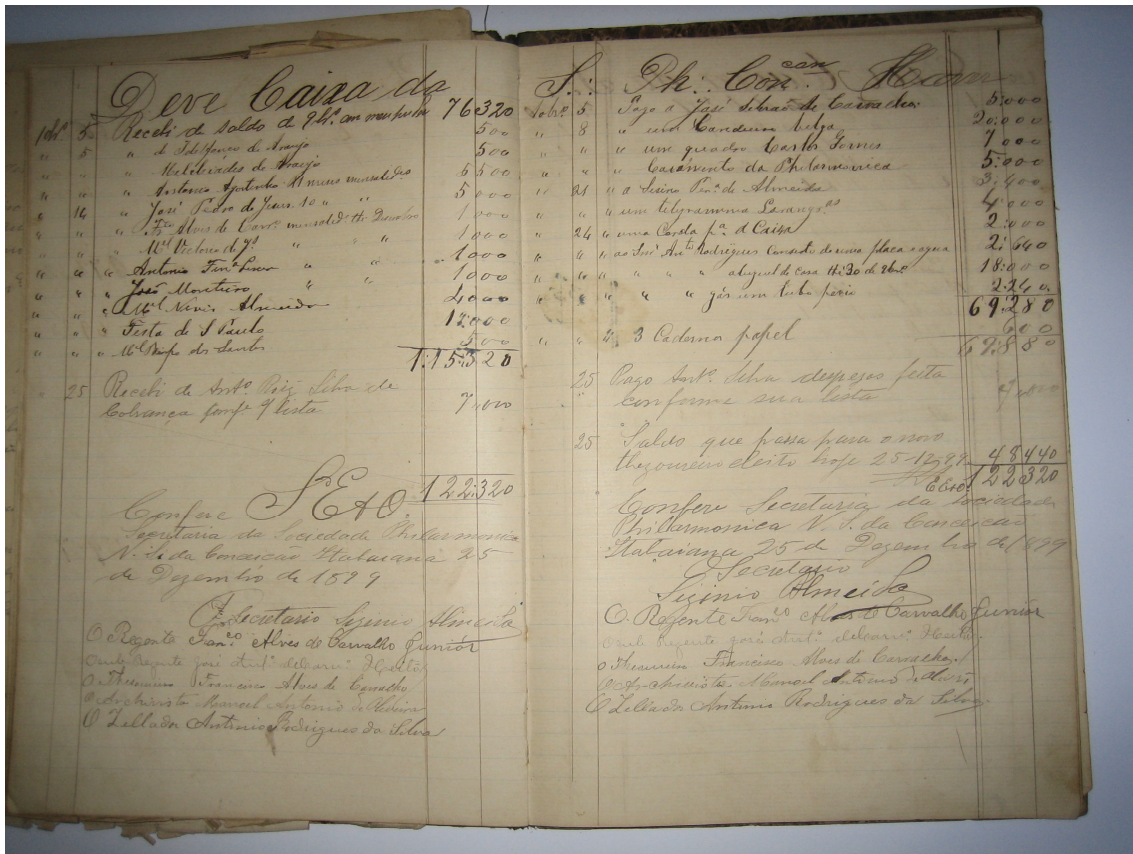 Deve Caixa da
5 Recebi de saldo de 76:320
" 5 " de Idelfonso de Araujo 500
" " " Melchiades de Araujo 500
" " " Antonio Agostinho 11 meses mensalidades 5500
" 14 " José Pedro de Jesus 10 " " 5000
" " " Alves de Carvº mensalidº 1000
" " " 1000
" " " Antonio " " 1000
" " " José Monteiro " " 1000
" " " Mel Almeida 4000
" " " Festa de S Paulo 12:000
" " " Mel dos Santos 500
1:15:320
" 25 Recebi de Antº Roiz Silva de
Cobrança lista 7:000
SE&O 122:320
Confere
Secretaria da Sociedade Philarmonica
N. S. da Conceição Itabaiana 25
de Dezembro de 1899
Secretario Sizinio Almeida
O Regente Francº Alves de Carvalho Junior
O sub Regente José Antº
O Thesoureiro Francisco Alves de Carvalho
O Archivista Manoel Antonio de Oliveira
O Zellador Antonio Rodrigues da Silva
S.: Ph: Conan
5 Pago a José de Carvalho 5:000
" 8 " um Candieiro belga 20:000
" " " um quadro Carlos Gomes 7000
" " " da Philarmonica 5:000
" 21 " a Sisino de Almeida 3:400
" " " um telegramma 4:000
" 24 " uma Corda pª a Caixa 2:000
" " " ao José Antº Rodrigues Concerto de uma placa e agua 2:640
" " " " " aluguel de casa 18:000
" " " " " gás um tubo 2:240
69:280
" " " 3 Caderno papel 600
69:880
25 Pago Antº Silva despezas feita
conforme sua lista 4:000
25 Saldo que passa para o novo
thezoureiro eleito hoje 25-12-99 48440
E E&O 122320
Confere Secretaria da Sociedade
Philarmonica N. S. da Conceição
Itabaiana 25 de Dezembro de 1899
Secretario
Sizinio Almeida
O Regente Francº Alves de Carvalho Junior
O sub Regente José Antº
O Thesoureiro Francisco Alves de Carvalho
O Archivista Manoel Antonio
O Zellador Antonio Rodrigues da Silva